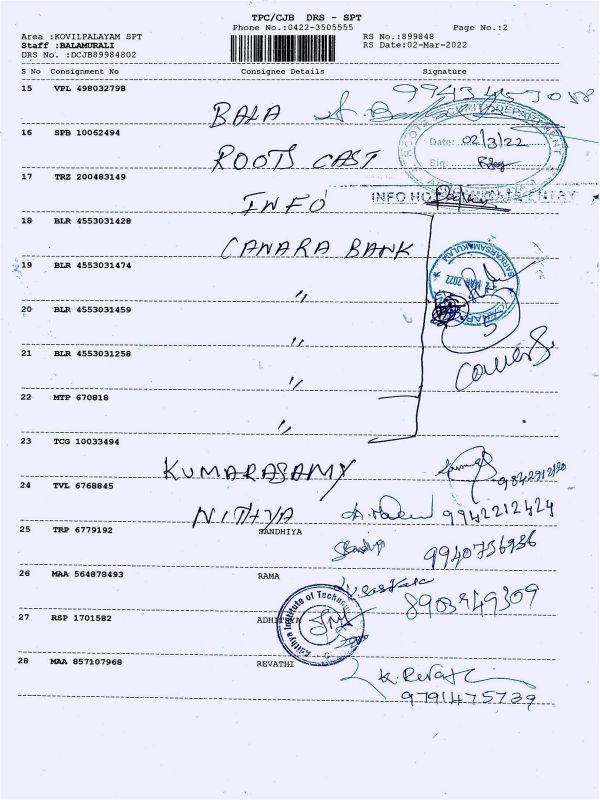 TPC/CJB DRS - SPT
Phone No.:0422-3505555 Page No.:2
Area :KOVILPALAYAM SPT RS No.:899848
Staff :BALAMURALI RS Date:02-Mar-2022
DRS No. :DCJB89984802
S No Consignment No Consignee Details Signature
15 VPL 498032798
BALA
16 SPB 10062494
Date: 02/3/22
ROOTS CAST
Sig:
17 TRZ 200483149
INFO
18 BLR 4553031428
CANARA BANK
19 BLR 4553031474
"
20 BLR 4553031459
"
21 BLR 4553031258
"
22 MTP 670818
"
23 TCG 10033494
KUMARASAMY
24 TVL 6768845
NITHYA 9942212424
25 TRP 6779192 SANDHIYA
9940736936
26 MAA 564878493 RAMA
8903949309
27 RSP 1701582 ADHITHYA
Adithya Institute of Technology
28 MAA 857107968 REVATHI
K. Revathi
9791475739